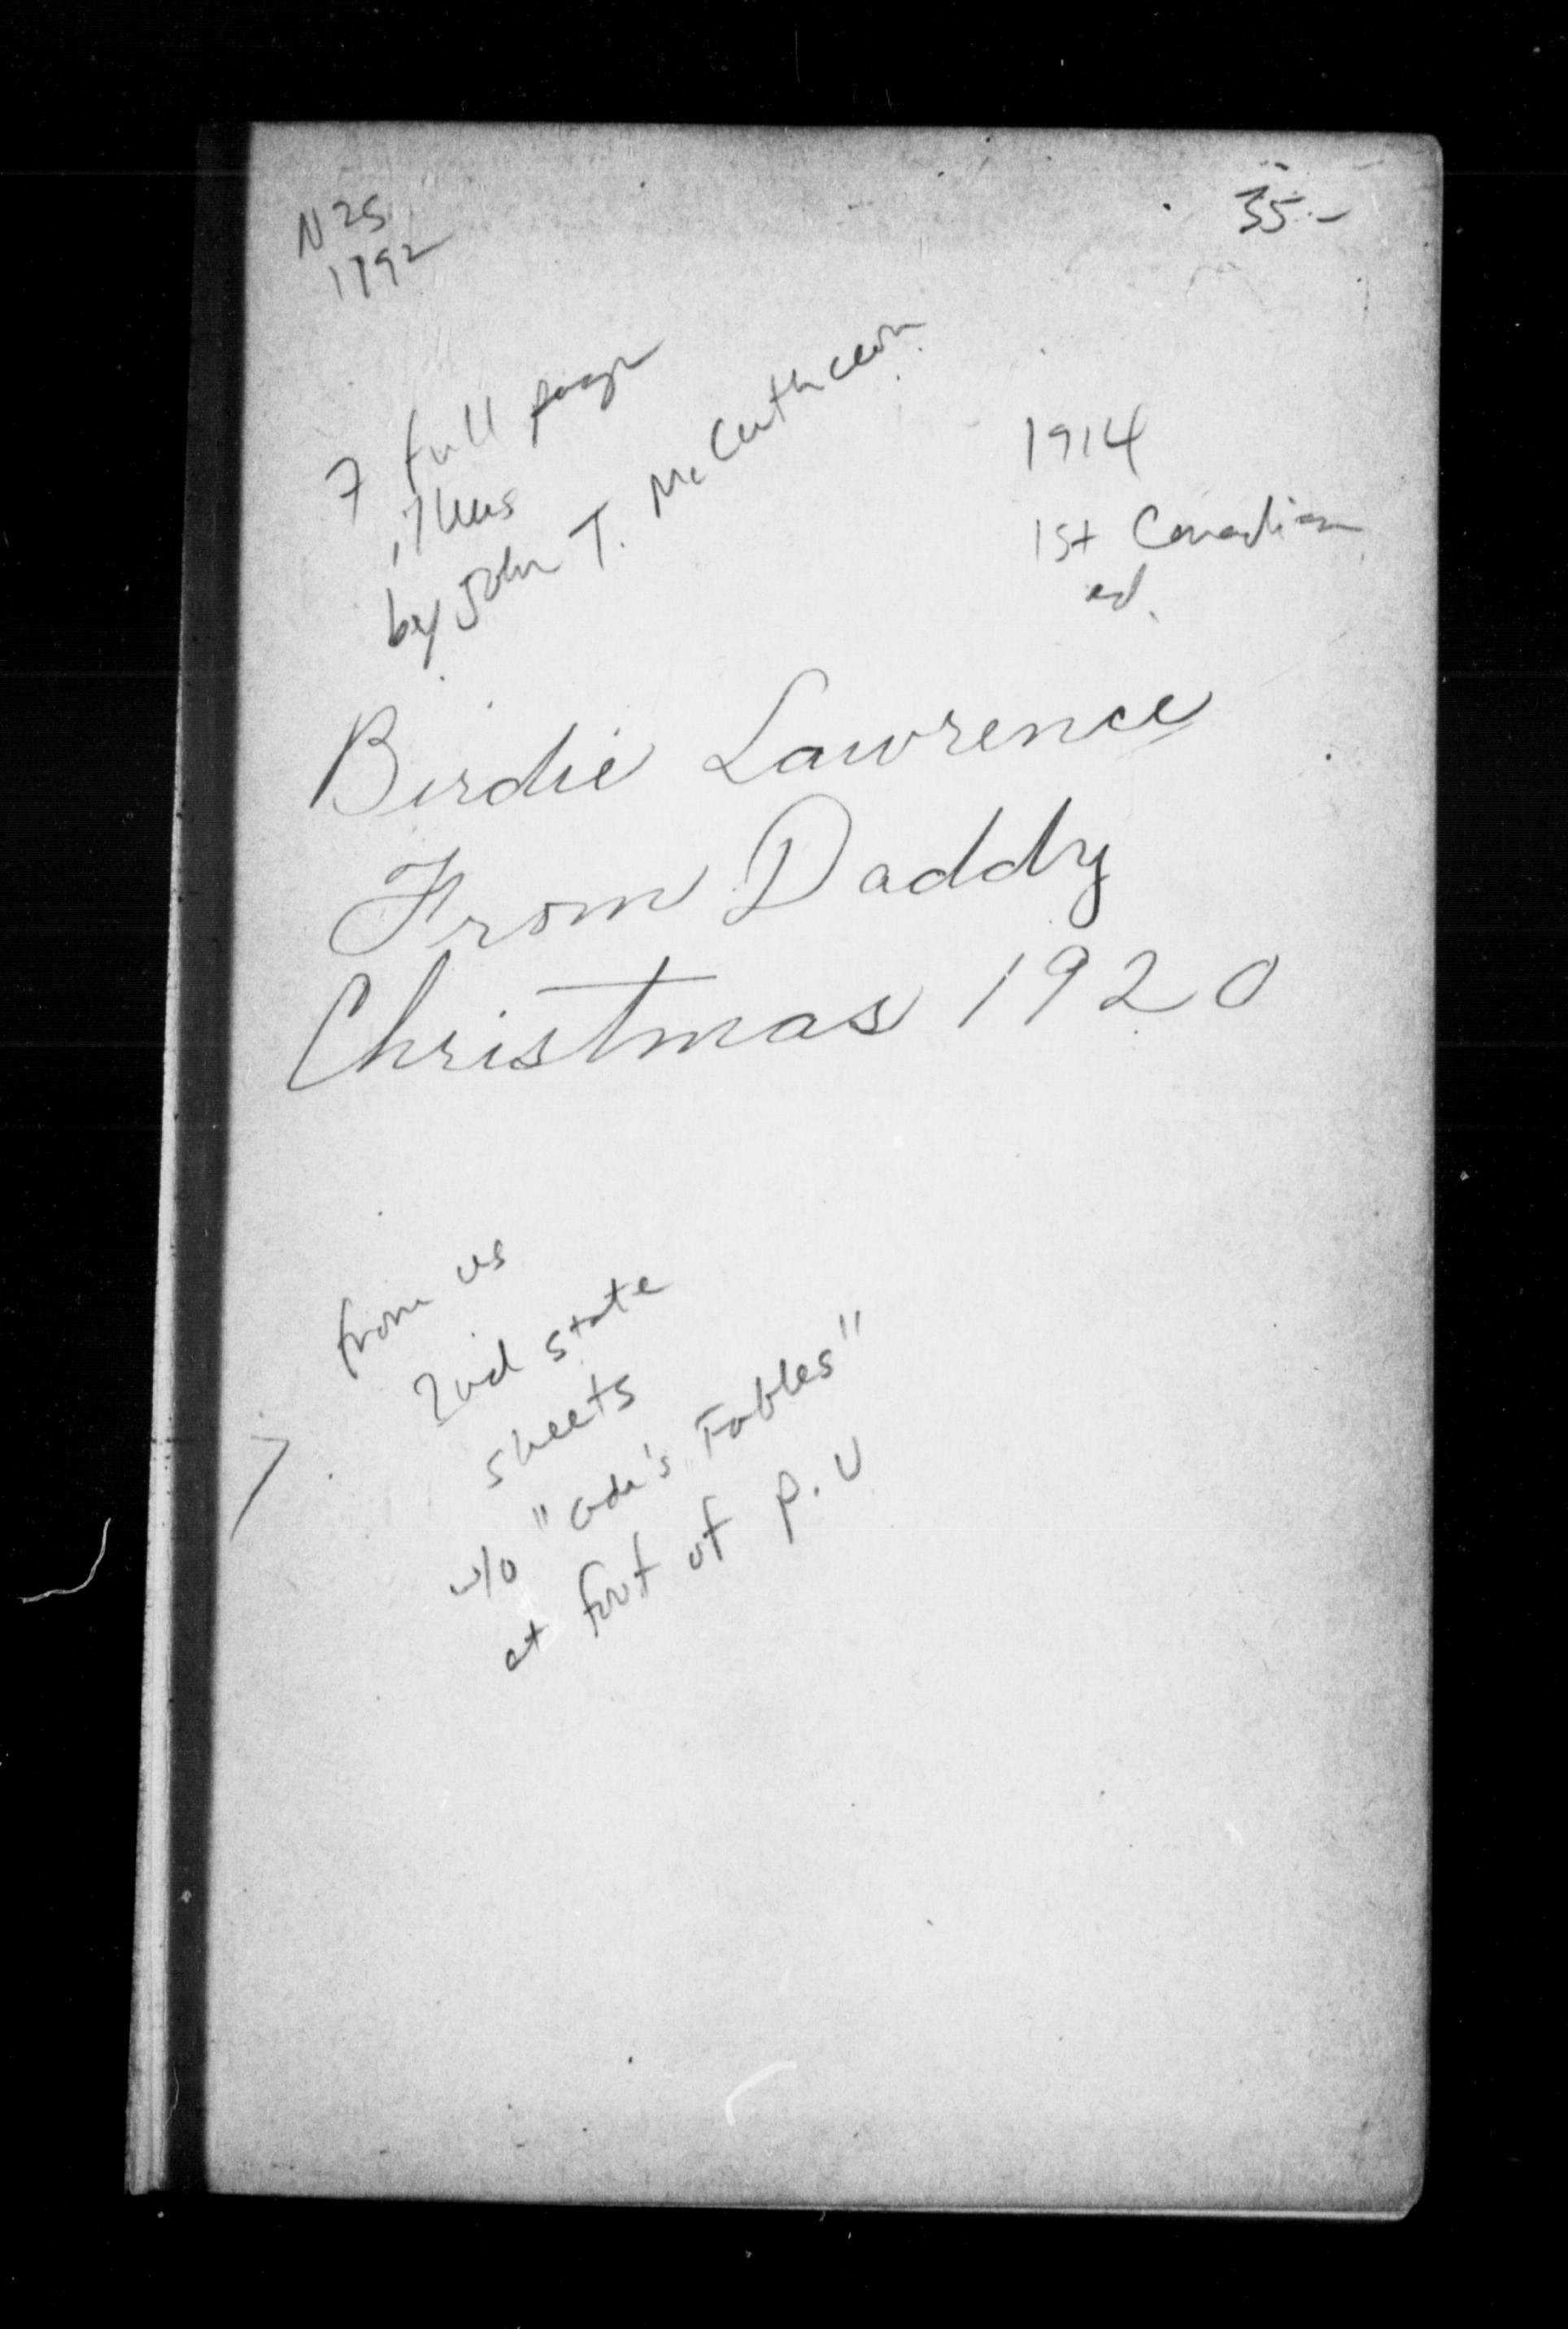 N25
1792
35.-
7 full page
illus
by John T. McCutcheon
1914
1st Canadian
ed.
Birdie Lawrence
From Daddy
Christmas 1920
from us
2nd state
sheets
w/o "Ade's Fables"
at foot of p. U